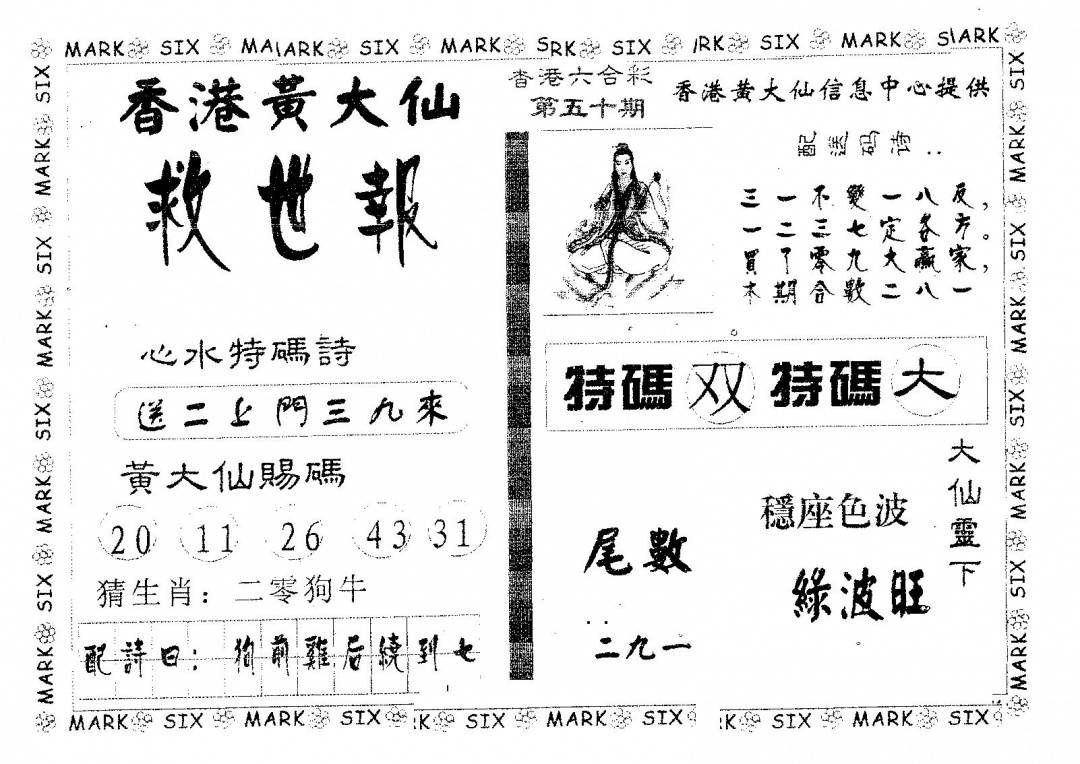 MARK SIX MARK SIX MARK SRK SIX RK SIX MARK SARK
香港黃大仙
救世報
心水特碼詩
送二上門三九來
黃大仙賜碼
20 11 26 43 31
猜生肖：二零狗牛
配詩曰：狗前雞后繞到七
香港六合彩
第五十期
香港黃大仙信息中心提供
配送码诗：
三一不變一八反，
一二三七定各方。
買了零九大贏家，
本期合數二八一
特碼双 特碼大
尾數
二九一
大仙靈下
穩座色波
綠波旺
MARK SIX MARK SIX RK SIX MARK SIX RK SIX MARK SIX
MARK SIX MARK SIX MARK SIX MARK SIX MARK SIX
MARK SIX MARK SIX MARK SIX MARK SIX MARK SIX